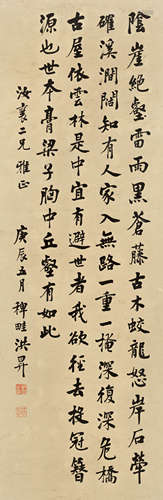 陰崖絕壑雷雨黑蒼藤古木蛟龍怒岸石犖
確溪濶闊知有人家入無路一重一掩深復深危橋
古屋依雲林是中宜有避世者我欲徑去投冠簪
源也世本膏粱子胸中丘壑有如此
汝襄二兄雅正 庚辰五月稗畦洪昇